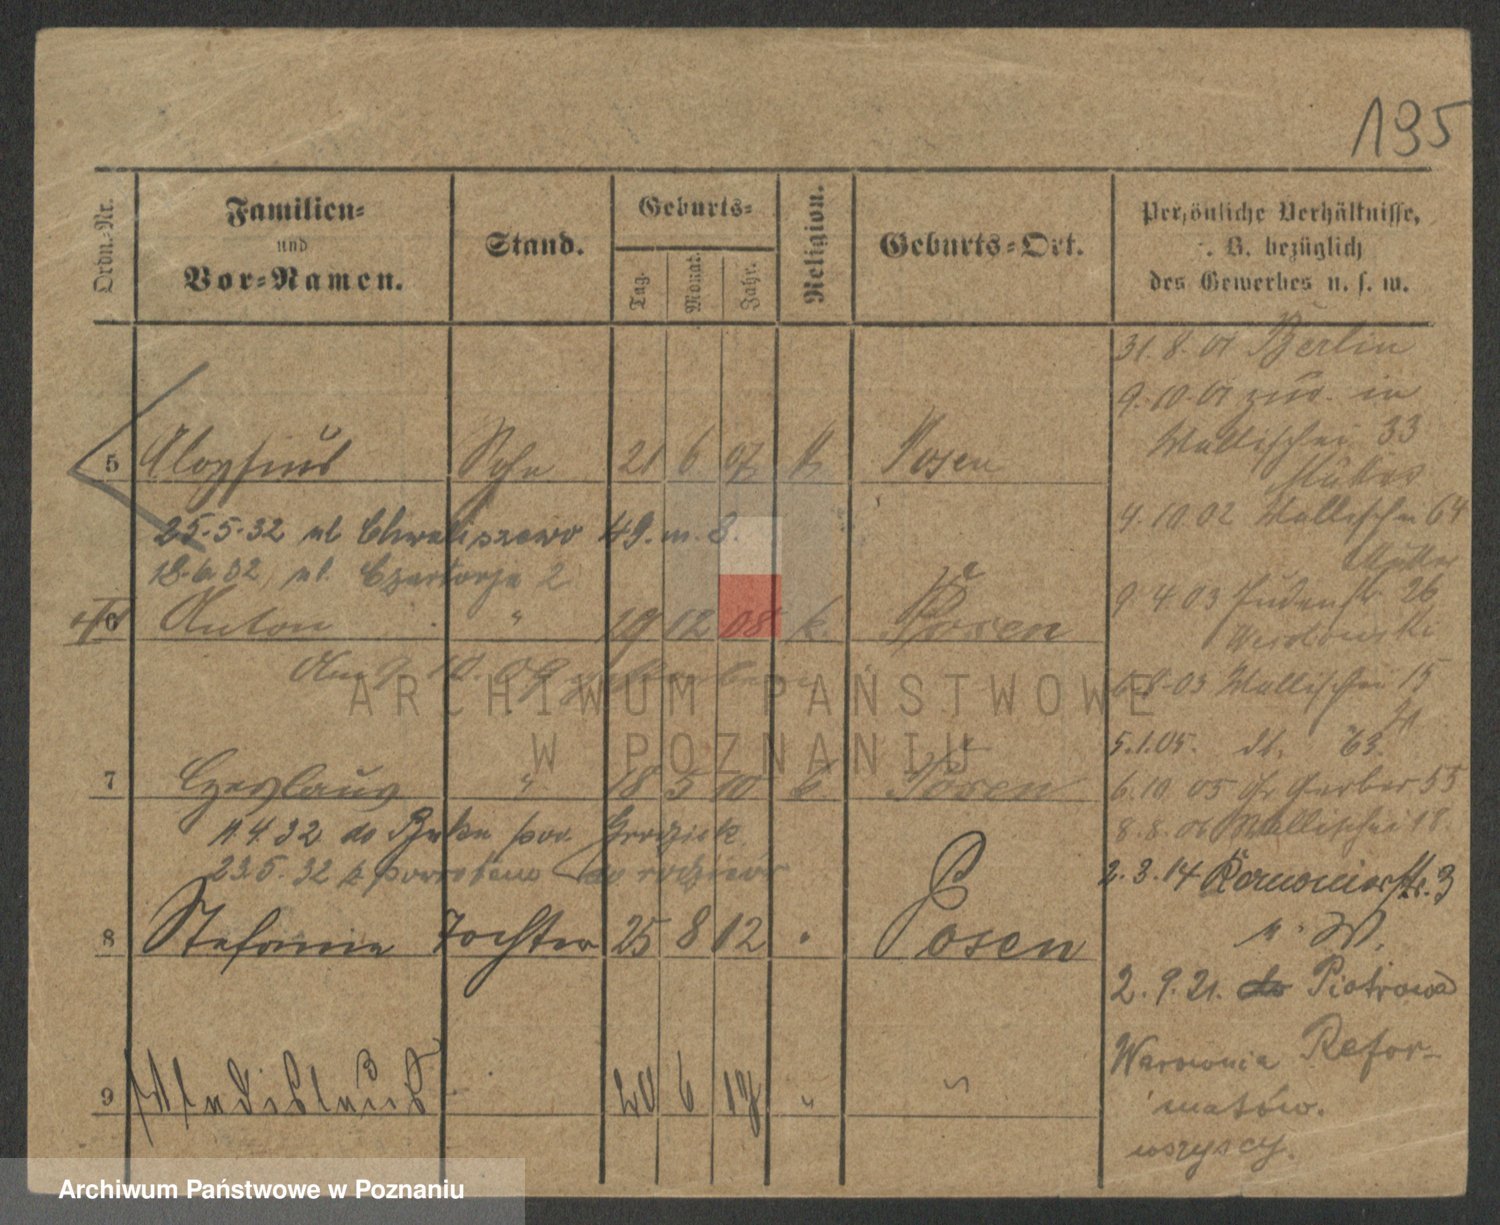 195
Ordn.-Nr.
Familien-
und
Vor-Namen.
Stand.
Geburts-
Tag.
Monat.
Jahr.
Religion.
Geburts-Ort.
Persönliche Verhältnisse,
. B. bezüglich
des Gewerbes u. s. w.
5 Aloysius Sohn 21 6 07 k Posen
25.5.32 ul Chwaliszewo 49. m. 8.
18.6.32 ul. Czartorja 2
6 Anton " 19 12 08 k. Posen
Am 9. 10. 09 gestorben
7 Czeslaus " 18 5 10 k Posen
11.4.32 do Buku pow. Grodzisk
23.5.32 z powrotem do rodziców
8 Stefanie Tochter 25 8 12 " Posen
9 Wladislaus 20 6 17 " "
31. 8. 01 Berlin
9. 10. 01 zur. in
Wallischei 33
Mutter
4. 10 02 Wallischei 64
Mutter
9. 4. 03 Judenstr. 26
6. 8. 03 Wallischei 15
5. 1. 05. dt. 63.
6. 10. 05 Gr Gerber 55
8. 8. 06 Wallischei 18.
2. 3. 14 3
u. W.
2. 9. 21. do Piotrowo
Warownia Refor-
matów.
wszyscy.
ARCHIWUM PAŃSTWOWE
W POZNANIU
Archiwum Państwowe w Poznaniu